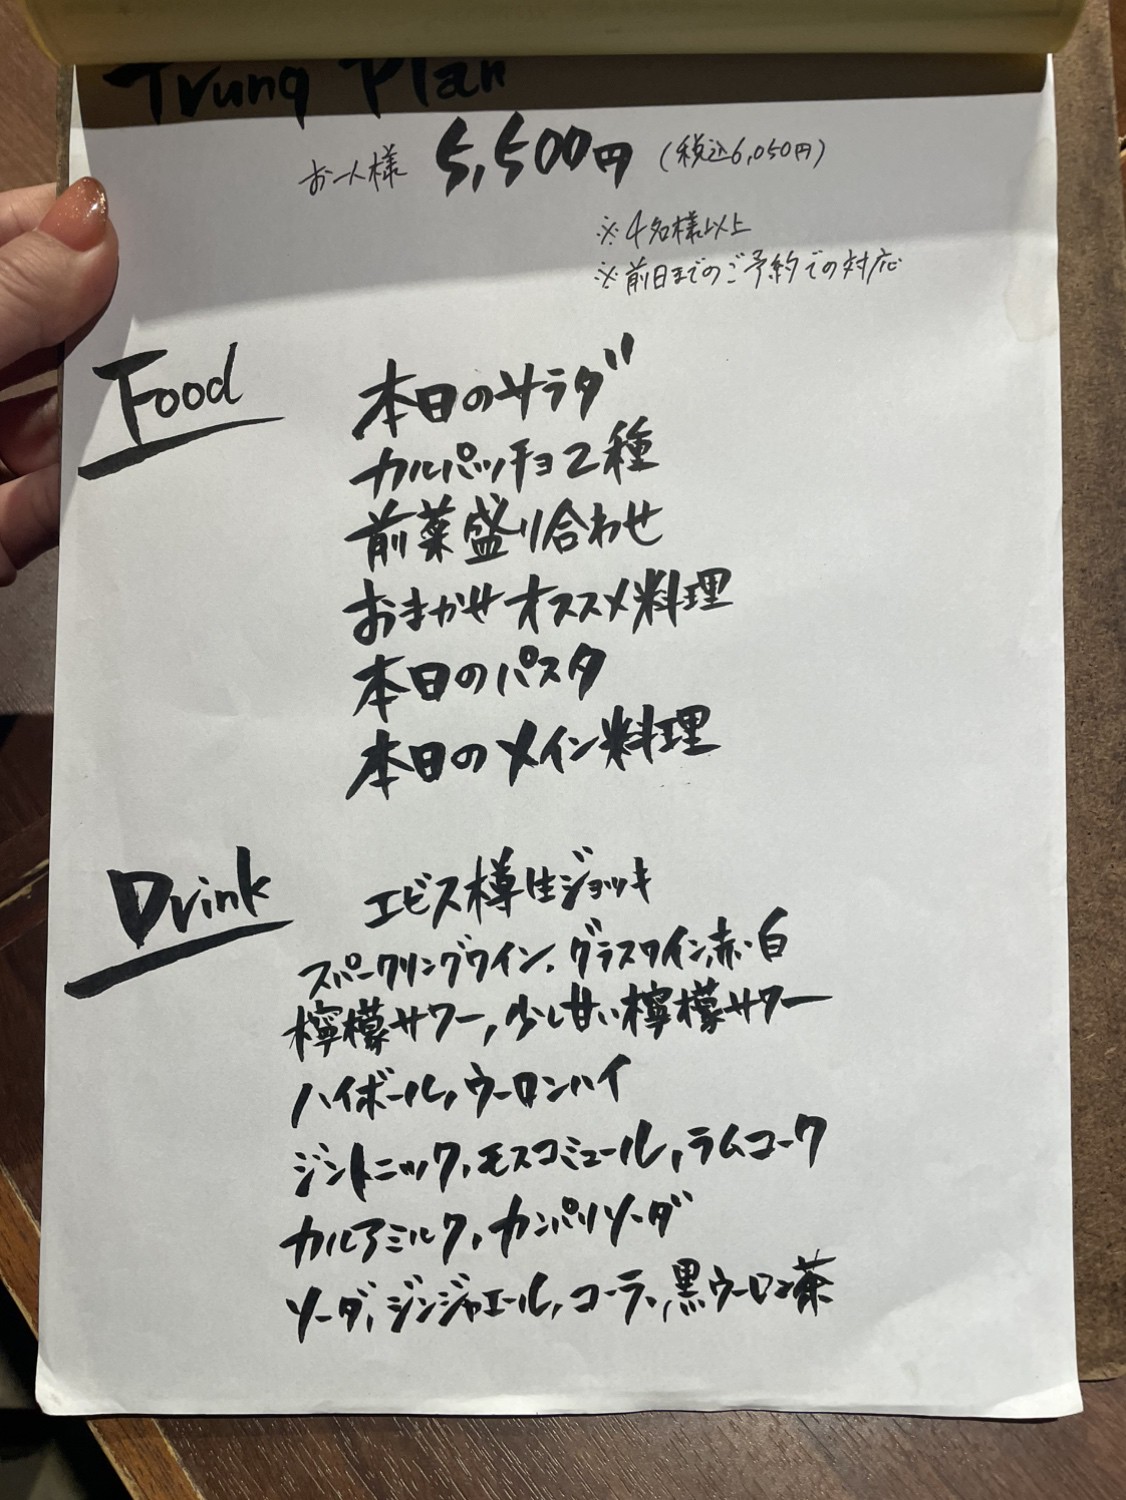 Trung Plan
お一人様 5,500円 (税込6,050円)
※4名様以上
※前日までのご予約での対応
Food
本日のサラダ
カルパッチョ2種
前菜盛り合わせ
おまかせオススメ料理
本日のパスタ
本日のメイン料理
Drink
エビス樽生ジョッキ
スパークリングワイン、グラスワイン赤・白
檸檬サワー, 少し甘い檸檬サワー
ハイボール, ウーロンハイ
ジントニック, モスコミュール, ラムコーク
カルアミルク, カンパリソーダ
ソーダ, ジンジャエール, コーラ, 黒ウーロン茶